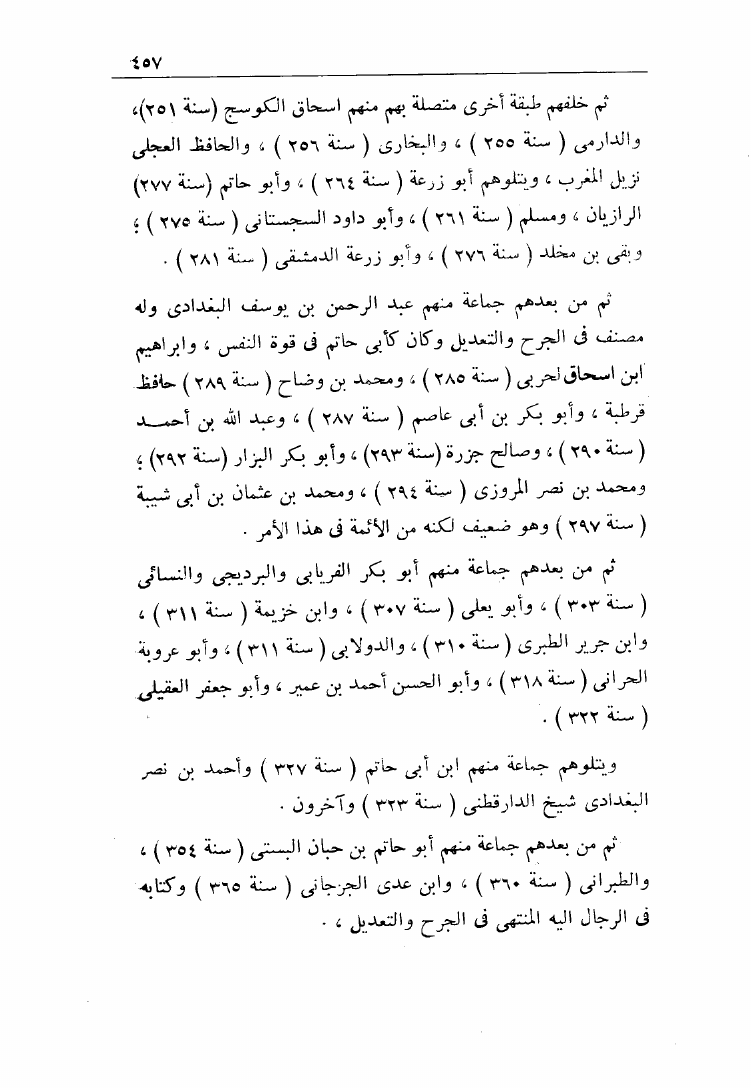 ٤٥٧
ثم خلفهم طبقة أخرى متصلة بهم منهم اسحاق الكوسج (سنة ٢٥١)،
والدارمى ( سنة ٢٥٥ ) ، والبخارى ( سنة ٢٥٦ ) ، والحافظ العجلى
نزيل المغرب ، ويتلوهم أبو زرعة ( سنة ٢٦٤ ) ، وأبو حاتم (سنة ٢٧٧)
الرازيان ، ومسلم ( سنة ٢٦١ ) ، وأبو داود السجستانى ( سنة ٢٧٥ ) ؛
وبقى بن مخلد ( سنة ٢٧٦ ) ، وأبو زرعة الدمشقى ( سنة ٢٨١ ) .
ثم من بعدهم جماعة منهم عبد الرحمن بن يوسف البغدادى وله
مصنف فى الجرح والتعديل وكان كأبى حاتم فى قوة النفس ، وابراهيم
ابن اسحاق لحربى ( سنة ٢٨٥ ) ، ومحمد بن وضاح ( سنة ٢٨٩ ) حافظ
قرطبة ، وأبو بكر بن أبى عاصم ( سنة ٢٨٧ ) ، وعبد الله بن أحمـــد
( سنة ٢٩٠ ) ، وصالح جزرة (سنة ٢٩٣) ، وأبو بكر البزار (سنة ٢٩٢) ؛
ومحمد بن نصر المروزى ( سنة ٢٩٤ ) ، ومحمد بن عثمان بن أبى شيبة
( سنة ٢٩٧ ) وهو ضعيف لكنه من الأئمة فى هذا الأمر .
ثم من بعدهم جماعة منهم أبو بكر الفريابى والبرديجى والنسائى
( سنة ٣٠٣ ) ، وأبو يعلى ( سنة ٣٠٧ ) ، وابن خزيمة ( سنة ٣١١ ) ،
وابن جرير الطبرى ( سنة ٣١٠ ) ، والدولابى ( سنة ٣١١ ) ، وأبو عروبة
الحرانى ( سنة ٣١٨ ) ، وأبو الحسن أحمد بن عمير ، وأبو جعفر العقيلى
( سنة ٣٢٢ ) .
ويتلوهم جماعة منهم ابن أبى حاتم ( سنة ٣٢٧ ) وأحمد بن نصر
البغدادى شيخ الدارقطنى ( سنة ٣٢٣ ) وآخرون .
ثم من بعدهم جماعة منهم أبو حاتم بن حبان البستى ( سنة ٣٥٤ ) ،
والطبرانى ( سنة ٣٦٠ ) ، وابن عدى الجرجانى ( سنة ٣٦٥ ) وكتابه
فى الرجال اليه المنتهى فى الجرح والتعديل ، .